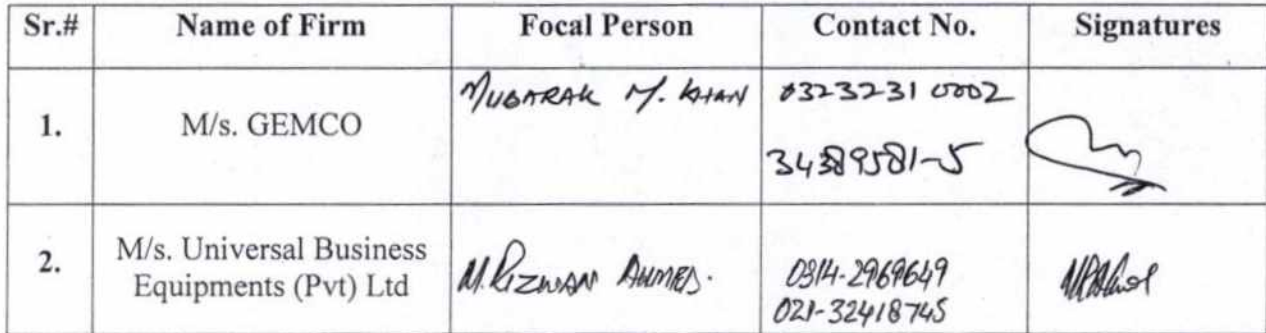 Sr.# Name of Firm Focal Person Contact No. Signatures
1. M/s. GEMCO MUBARAK M. KHAN 03232310002
34389581-5
2. M/s. Universal Business Equipments (Pvt) Ltd M. RIZWAN AHMED. 0314-2969649
021-32418745